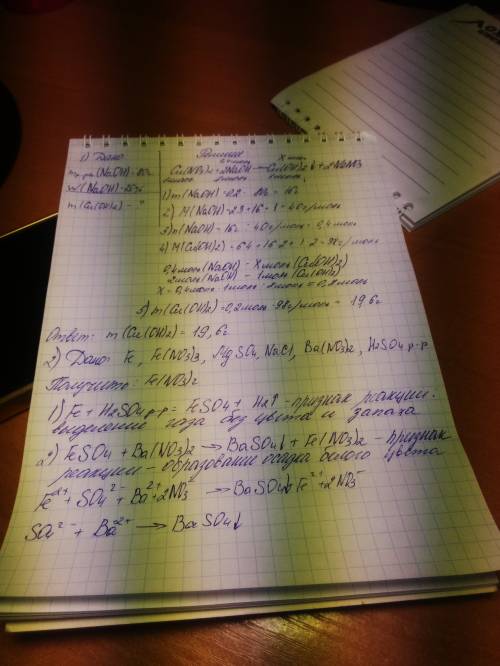 1) Дано:
Решение
0,4 моль X моль
m р-ра (NaOH) = 80г
Cu(NO3)2 + 2NaOH → Cu(OH)2↓ + 2NaNO3
1моль 2моль 1моль
w (NaOH) =
m (Cu(OH)2) - ?
1) m(NaOH) = 0,2 · 80г = 16г
2) M(NaOH) = 23 + 16 + 1 = 40г/моль
3) n(NaOH) = 16г : 40г/моль = 0,4 моль
4) M(Cu(OH)2) = 64 + 16·2 + 1·2 = 98г/моль
0,4моль (NaOH) - X моль (Cu(OH)2)
2моль (NaOH) - 1моль (Cu(OH)2)
X = 0,4моль · 1моль : 2моль = 0,2моль
5) m(Cu(OH)2) = 0,2моль · 98г/моль = 19,6г
Ответ: m(Cu(OH)2) = 19,6г
2) Дано: Fe, Fe(NO3)3, MgSO4, NaCl, Ba(NO3)2, H2SO4 р-р
Получить: Fe(NO3)2
1) Fe + H2SO4 р-р = FeSO4 + H2↑ - признак реакции -
выделение газа без цвета и запаха
2) FeSO4 + Ba(NO3)2 → BaSO4↓ + Fe(NO3)2 - признак
реакции - образование осадка белого цвета
Fe2+ + SO4 2- + Ba2+ + 2NO3- → BaSO4↓ + Fe2+ + 2NO3-
SO4 2- + Ba2+ → BaSO4↓